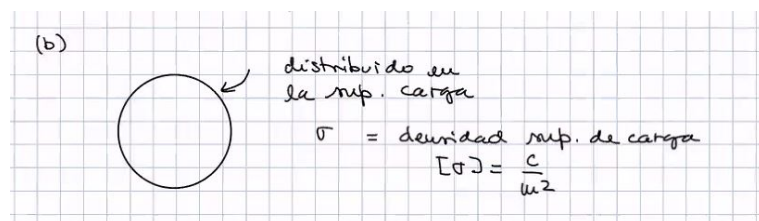 (b)
distribuido en
la sup. carga
σ = densidad sup. de carga
[σ] = C/m²